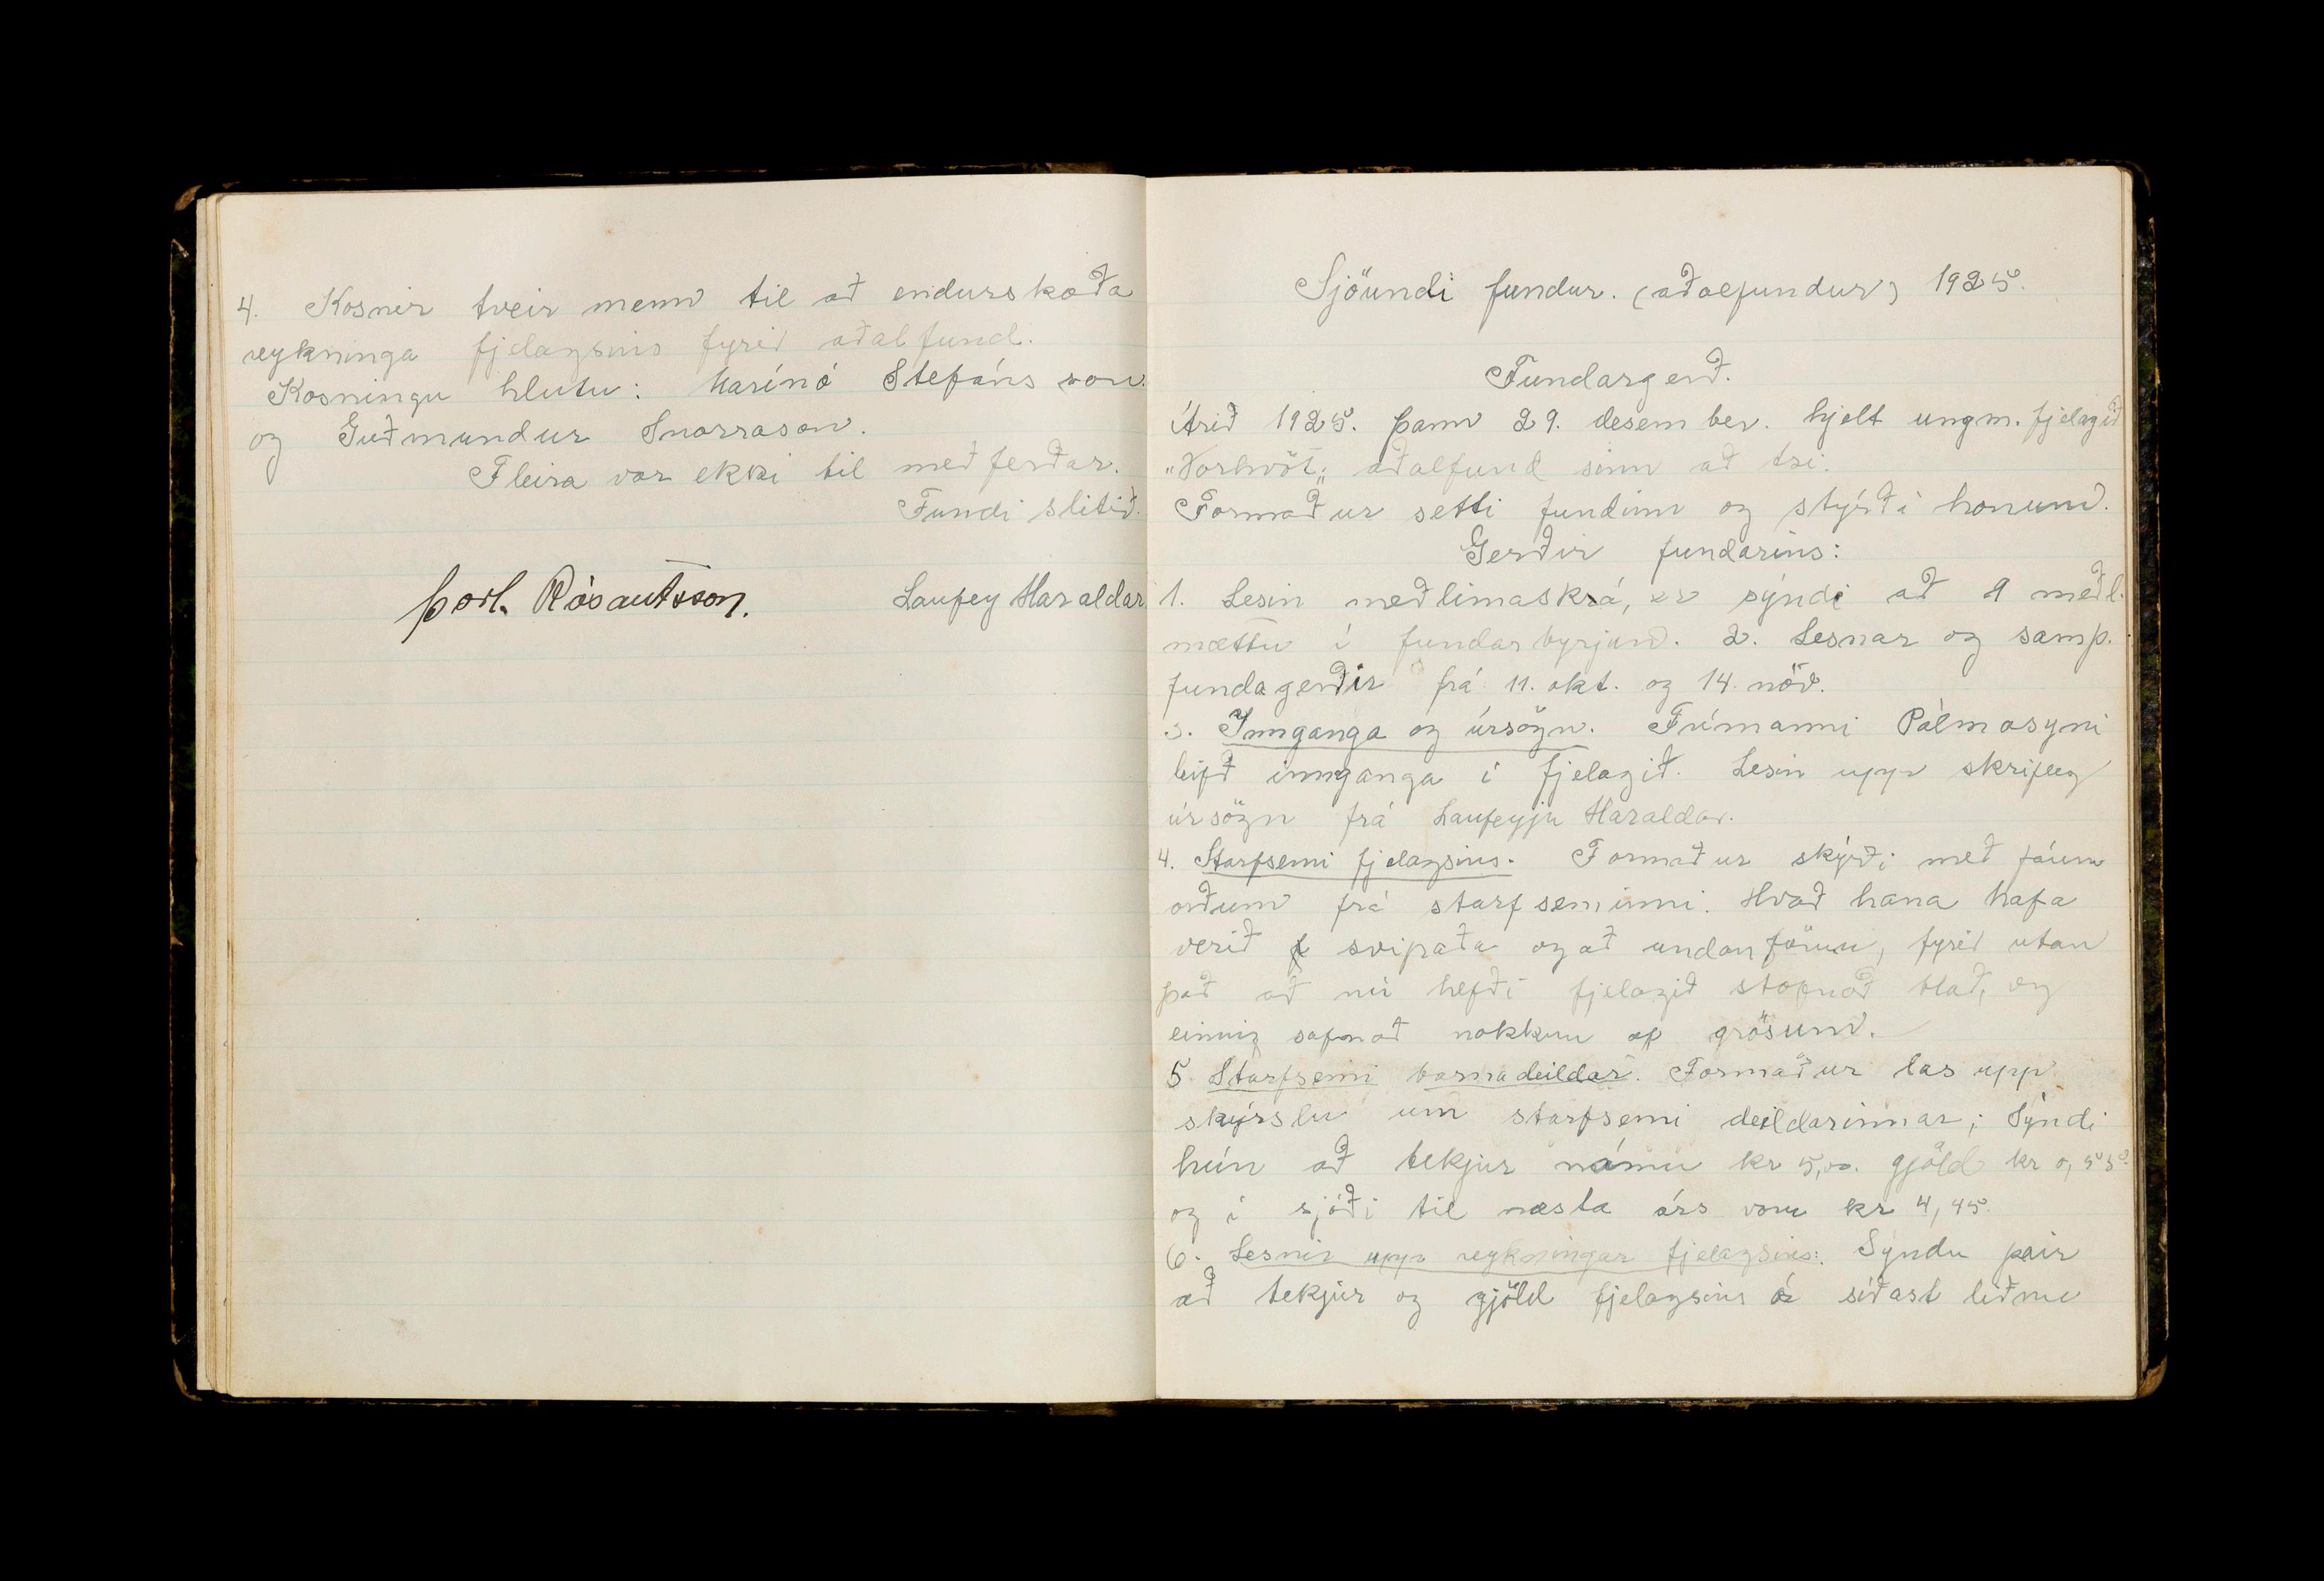 4. Kosnir tveir menn til að endurskoða
reykninga fjelagsins fyrir aðalfund.
Kosningu hlutu: Marínó Stefáns son
og Guðmundur Snorrason.
Fleira var ekki til með ferðar.
Fundi slitið.
Þorl. Rósantsson.
Laufey Haraldar
Sjöundi fundur. (aðalfundur) 1925.
Fundargerð.
Árið 1925. þann 29. desember. hjelt ungm. fjelagið
„Vorhvöt„ aðalfund sinn að
Formaður setti fundinn og stýrði honum.
Gerðir fundarins:
1. Lesin meðlimaskrá, er sýndi að 9 meðl.
mættu í fundarbyrjun. 2. Lesnar og samþ.
fundagerðir frá 11. okt. og 14. nóv.
3. Innganga og úrsögn. Frímanni Pálmasyni
leifð innganga í fjelagið. Lesin upp skrifleg
úrsögn frá Laufeyju Haraldar.
4. Starfsemi fjelagsins. Formaður skýrði með fáum
orðum frá starfseminni. Hvað hana hafa
verið svipaða og að undanförnu, fyrir utan
það að nú hefði fjelagið stofnað blað, og
einnig safnað nokkru af grösum.
5. Starfsemi barnadeildar. Formaður las upp
skýrslu um starfsemi deildarinnar; Sýndi
hún að tekjur námu kr 5,00. gjöld kr 0,55
og í sjóði til næsta árs voru kr 4,45.
6. Lesnir upp reykningar fjelagsins: Sýndu þair
að tekjur og gjöld fjelagsins á síðast liðnu